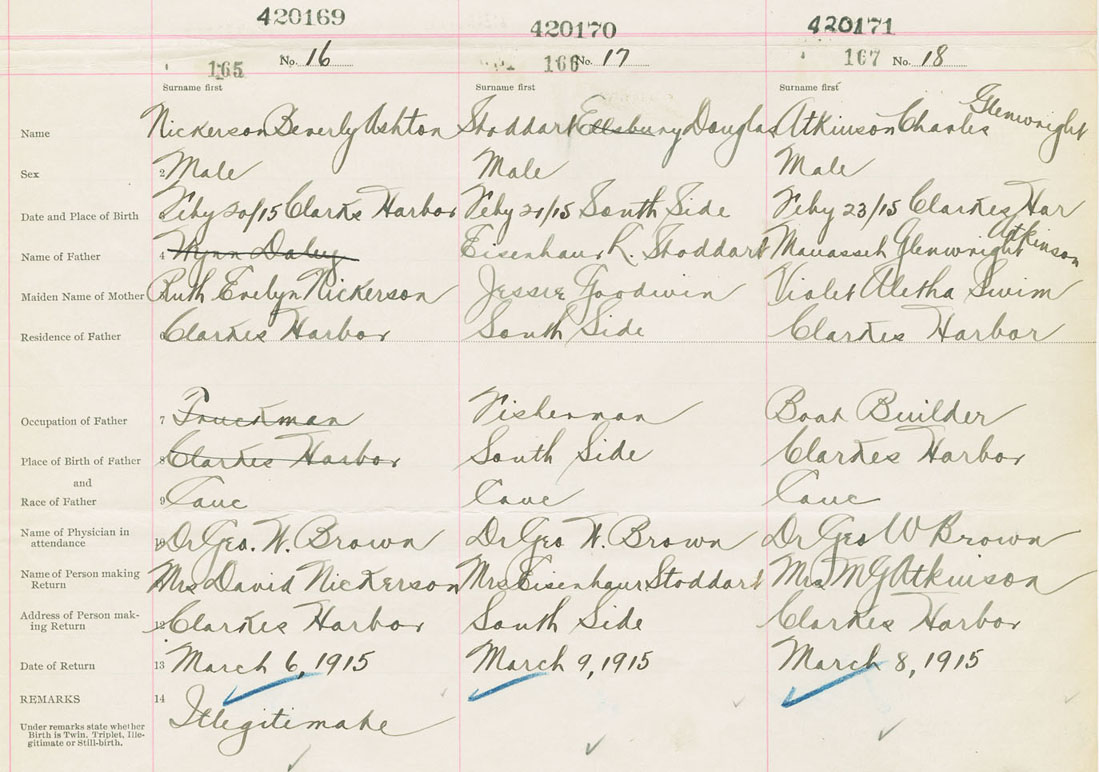 420169 420170 420171
165 No. 16 166 No. 17 167 No. 18
Surname first Surname first Surname first
Name Nickerson Beverly Ashton Stoddart Ellsbury Douglas Atkinson Charles Glenwright
Sex 2 Male Male Male
Date and Place of Birth Feby 20/15 Clarkes Harbor Feby 21/15 South Side Feby 23/15 Clarkes Har
Name of Father 4 Wynn Daley Eisenhaur R. Stoddart Manasseh Glenwright Atkinson
Maiden Name of Mother Ruth Evelyn Nickerson Jessie Goodwin Violet Aletha Swim
Residence of Father 6 Clarkes Harbor South Side Clarkes Harbor
Occupation of Father 7 Truckman Fisherman Boat Builder
Place of Birth of Father 8 Clarkes Harbor South Side Clarkes Harbor
and
Race of Father 9 Cauc Cauc Cauc
Name of Physician in
attendance 10 Dr Geo. W. Brown Dr Geo W. Brown Dr Geo W Brown
Name of Person making
Return Mrs David Nickerson Mrs Eisenhaur Stoddart Mrs M G Atkinson
Address of Person mak-
ing Return 12 Clarkes Harbor South Side Clarkes Harbor
Date of Return 13 March 6, 1915 March 9, 1915 March 8, 1915
REMARKS 14
Illegitimate
Under remarks state whether
Birth is Twin, Triplet, Ille-
gitimate or Still-birth.